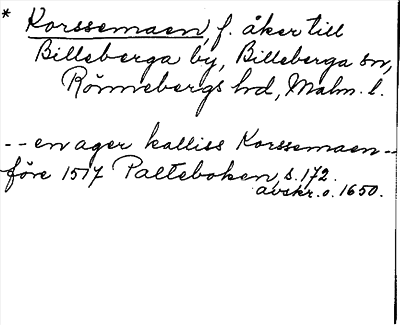 * Korssemaen, f. åker till
Billeberga by, Billeberga sn,
Rönnebergs hd, Malm. l.
-- en ager kalliss Korssemaen --
före 1517 Palteboken, s. 172.
avskr. o. 1650.